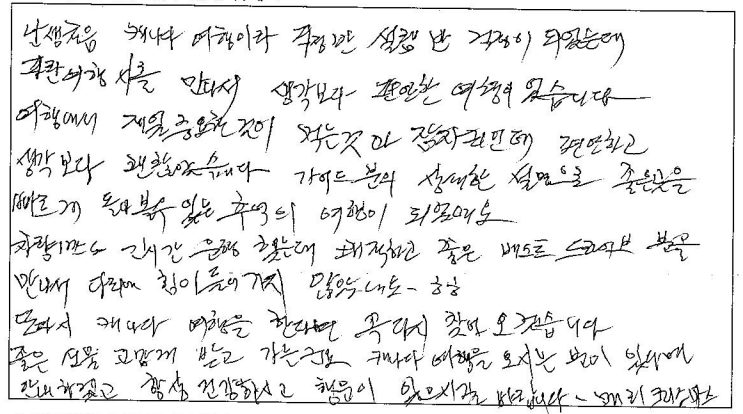 난생처음 캐나다 여행이라 걱정반 설렘 반 걱정이 되었는데
여행사를 만나서 생각보다 편안한 여행이 었습니다
여행에서 제일 중요한 것이 먹는것 과 잠자리인데 편안하고
생각보다 괜찮았습니다 가이드 분의 상세한 설명으로 좋은곳을
빠르게 돌아볼수 있는 추억의 여행이 되었네요
긴시간 운행 했는데 쾌적하고 좋은 베스트 드라이브 분을
만나서 다리에 힘이 들어가지 않았네요~ ㅎㅎ
또다시 캐나다 여행을 한다면 꼭 다시 찾아 오겠습니다
좋은 선물 고맙게 받고 가는 캐나다 여행을 오시는 분이 있다면
안내하겠고 항상 건강하시고 행운이 있으시길 바랍니다~ 메리 크리스마스